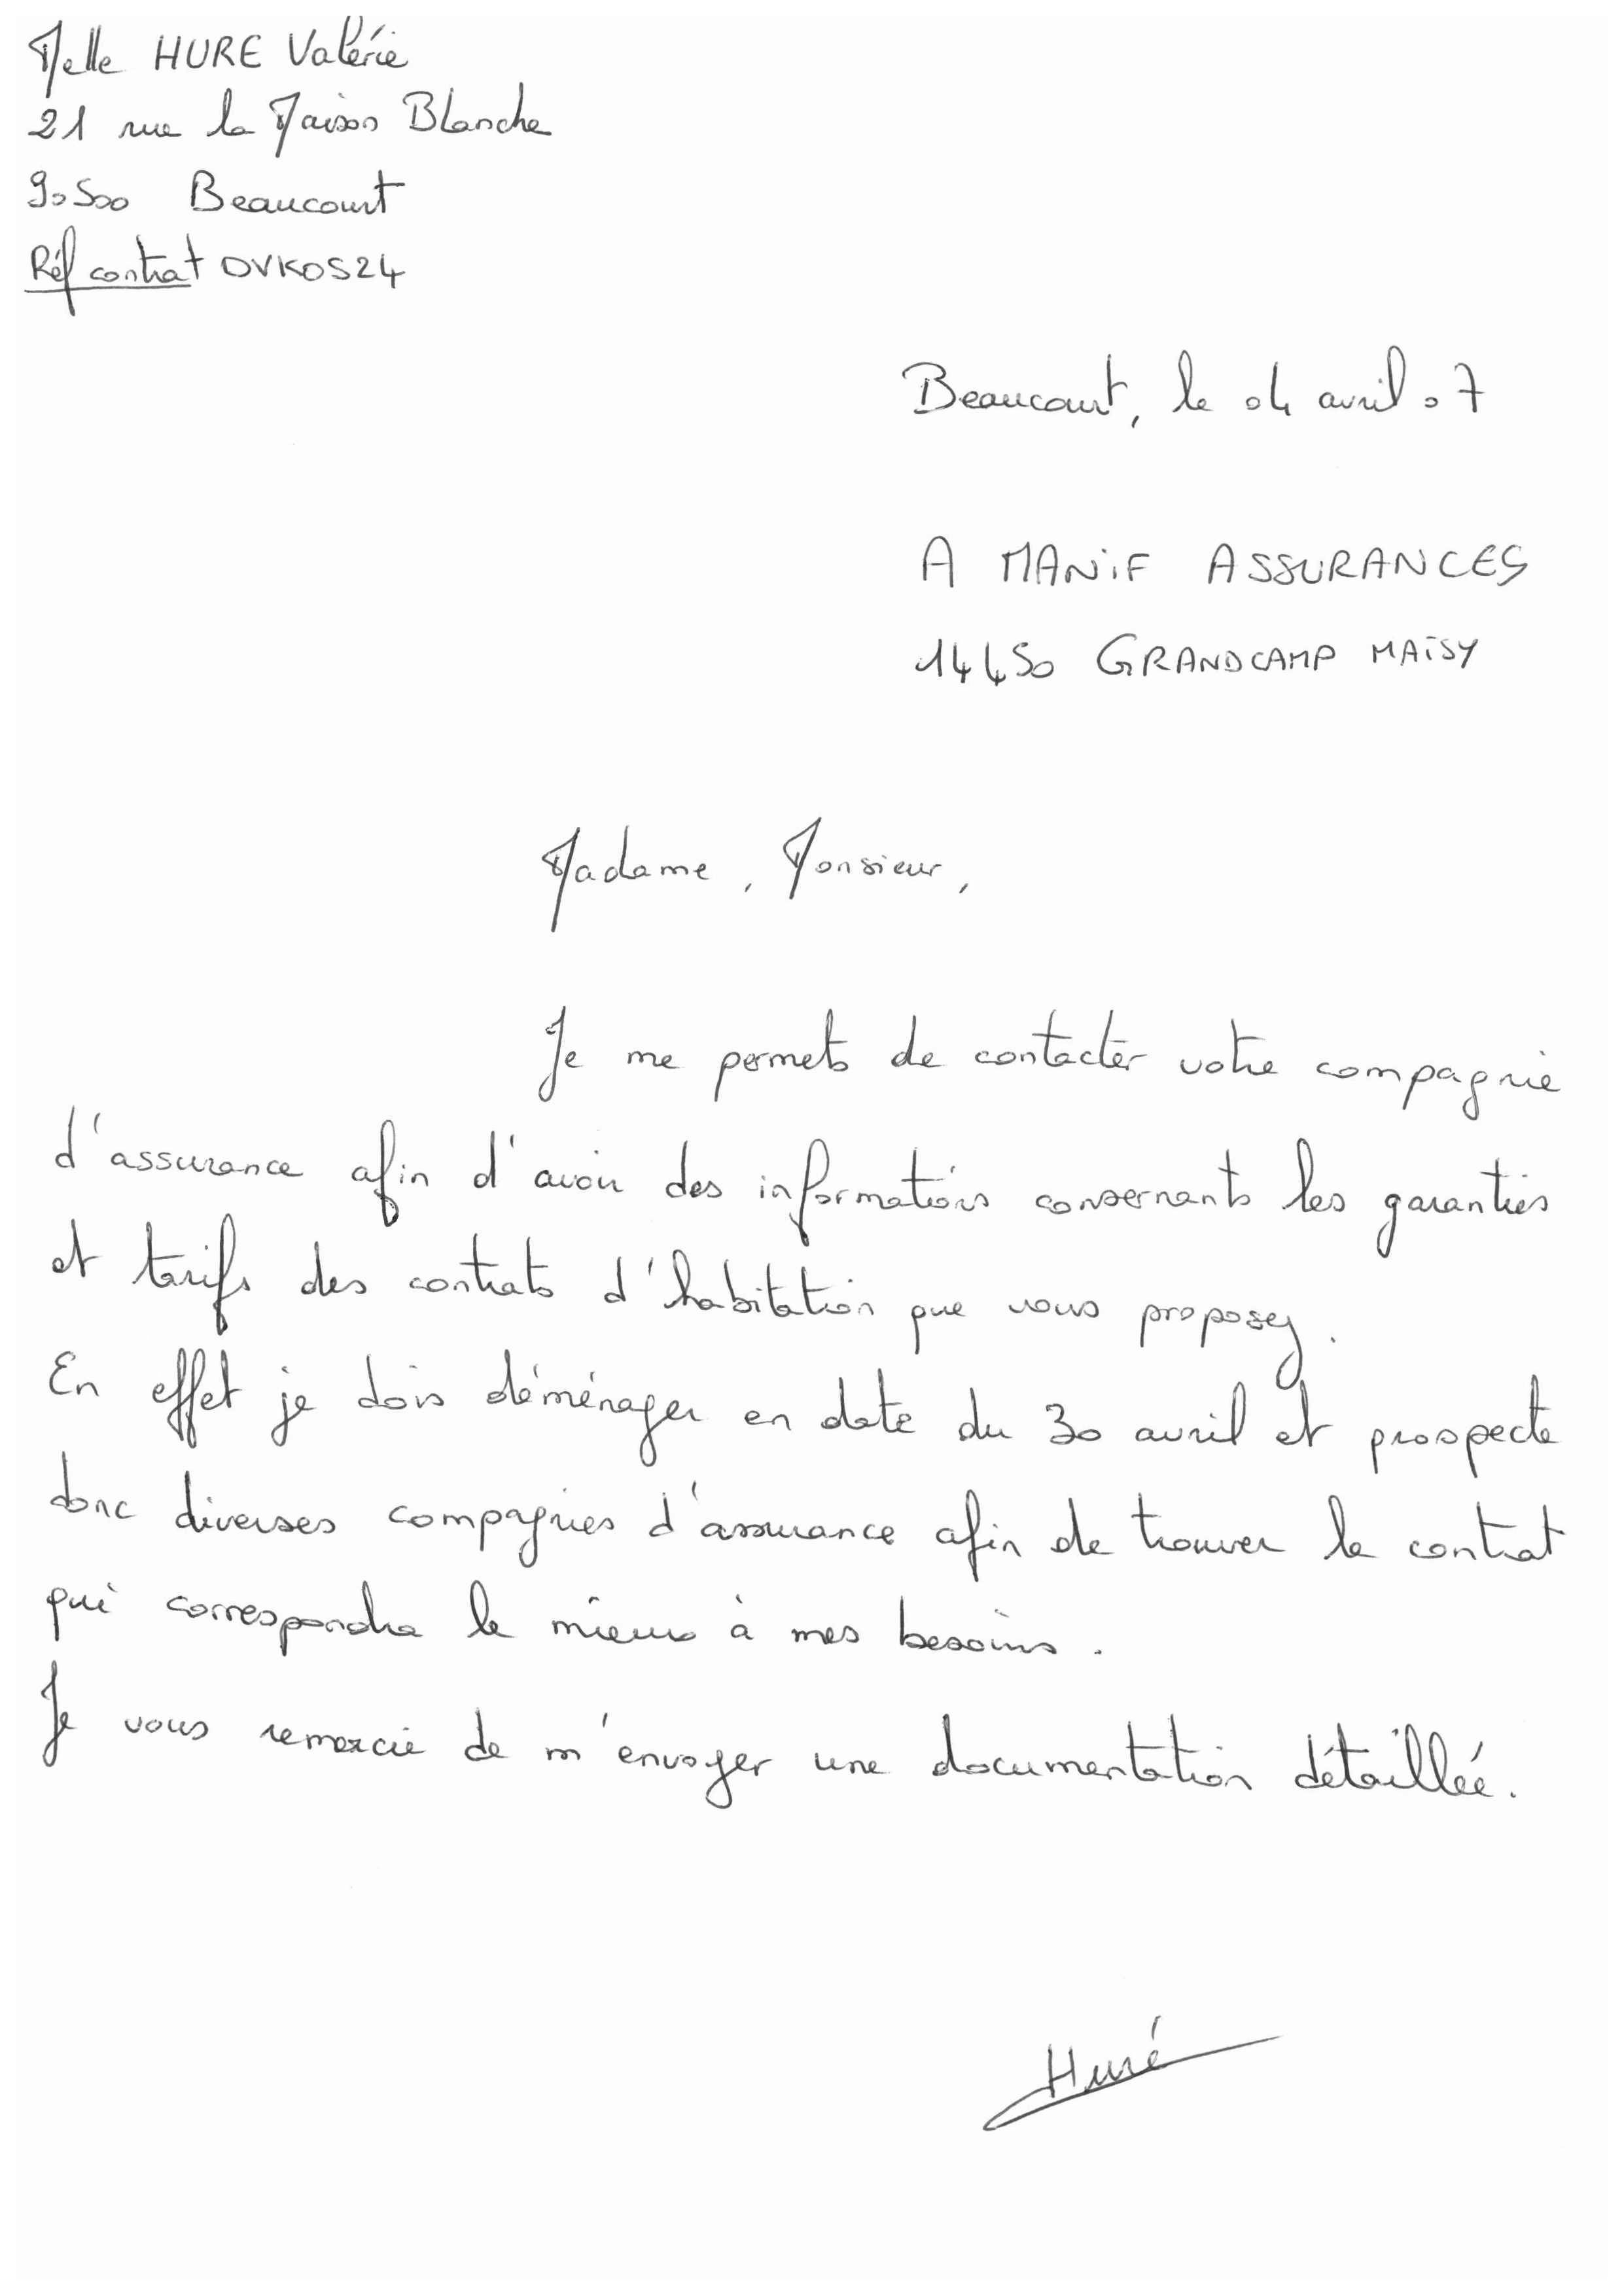 Melle HURE Valérie
21 rue la Maison Blanche
90500 Beaucourt
Réf contrat OVKOS24
Beaucourt, le 04 avril 07
A MANiF ASSURANCES
14450 GRANDCAMP MAiSY
Madame, Monsieur,
Je me permets de contacter votre compagnie
d'assurance afin d'avoir des informations consernants les garanties
et tarifs des contrats d'habitation que vous proposez.
En effet je dois déménager en date du 30 avril et prospecte
donc diverses compagnies d'assurance afin de trouver le contrat
qui correspondra le mieux à mes besoins.
Je vous remercie de m'envoyer une documentation détaillée.
Huré